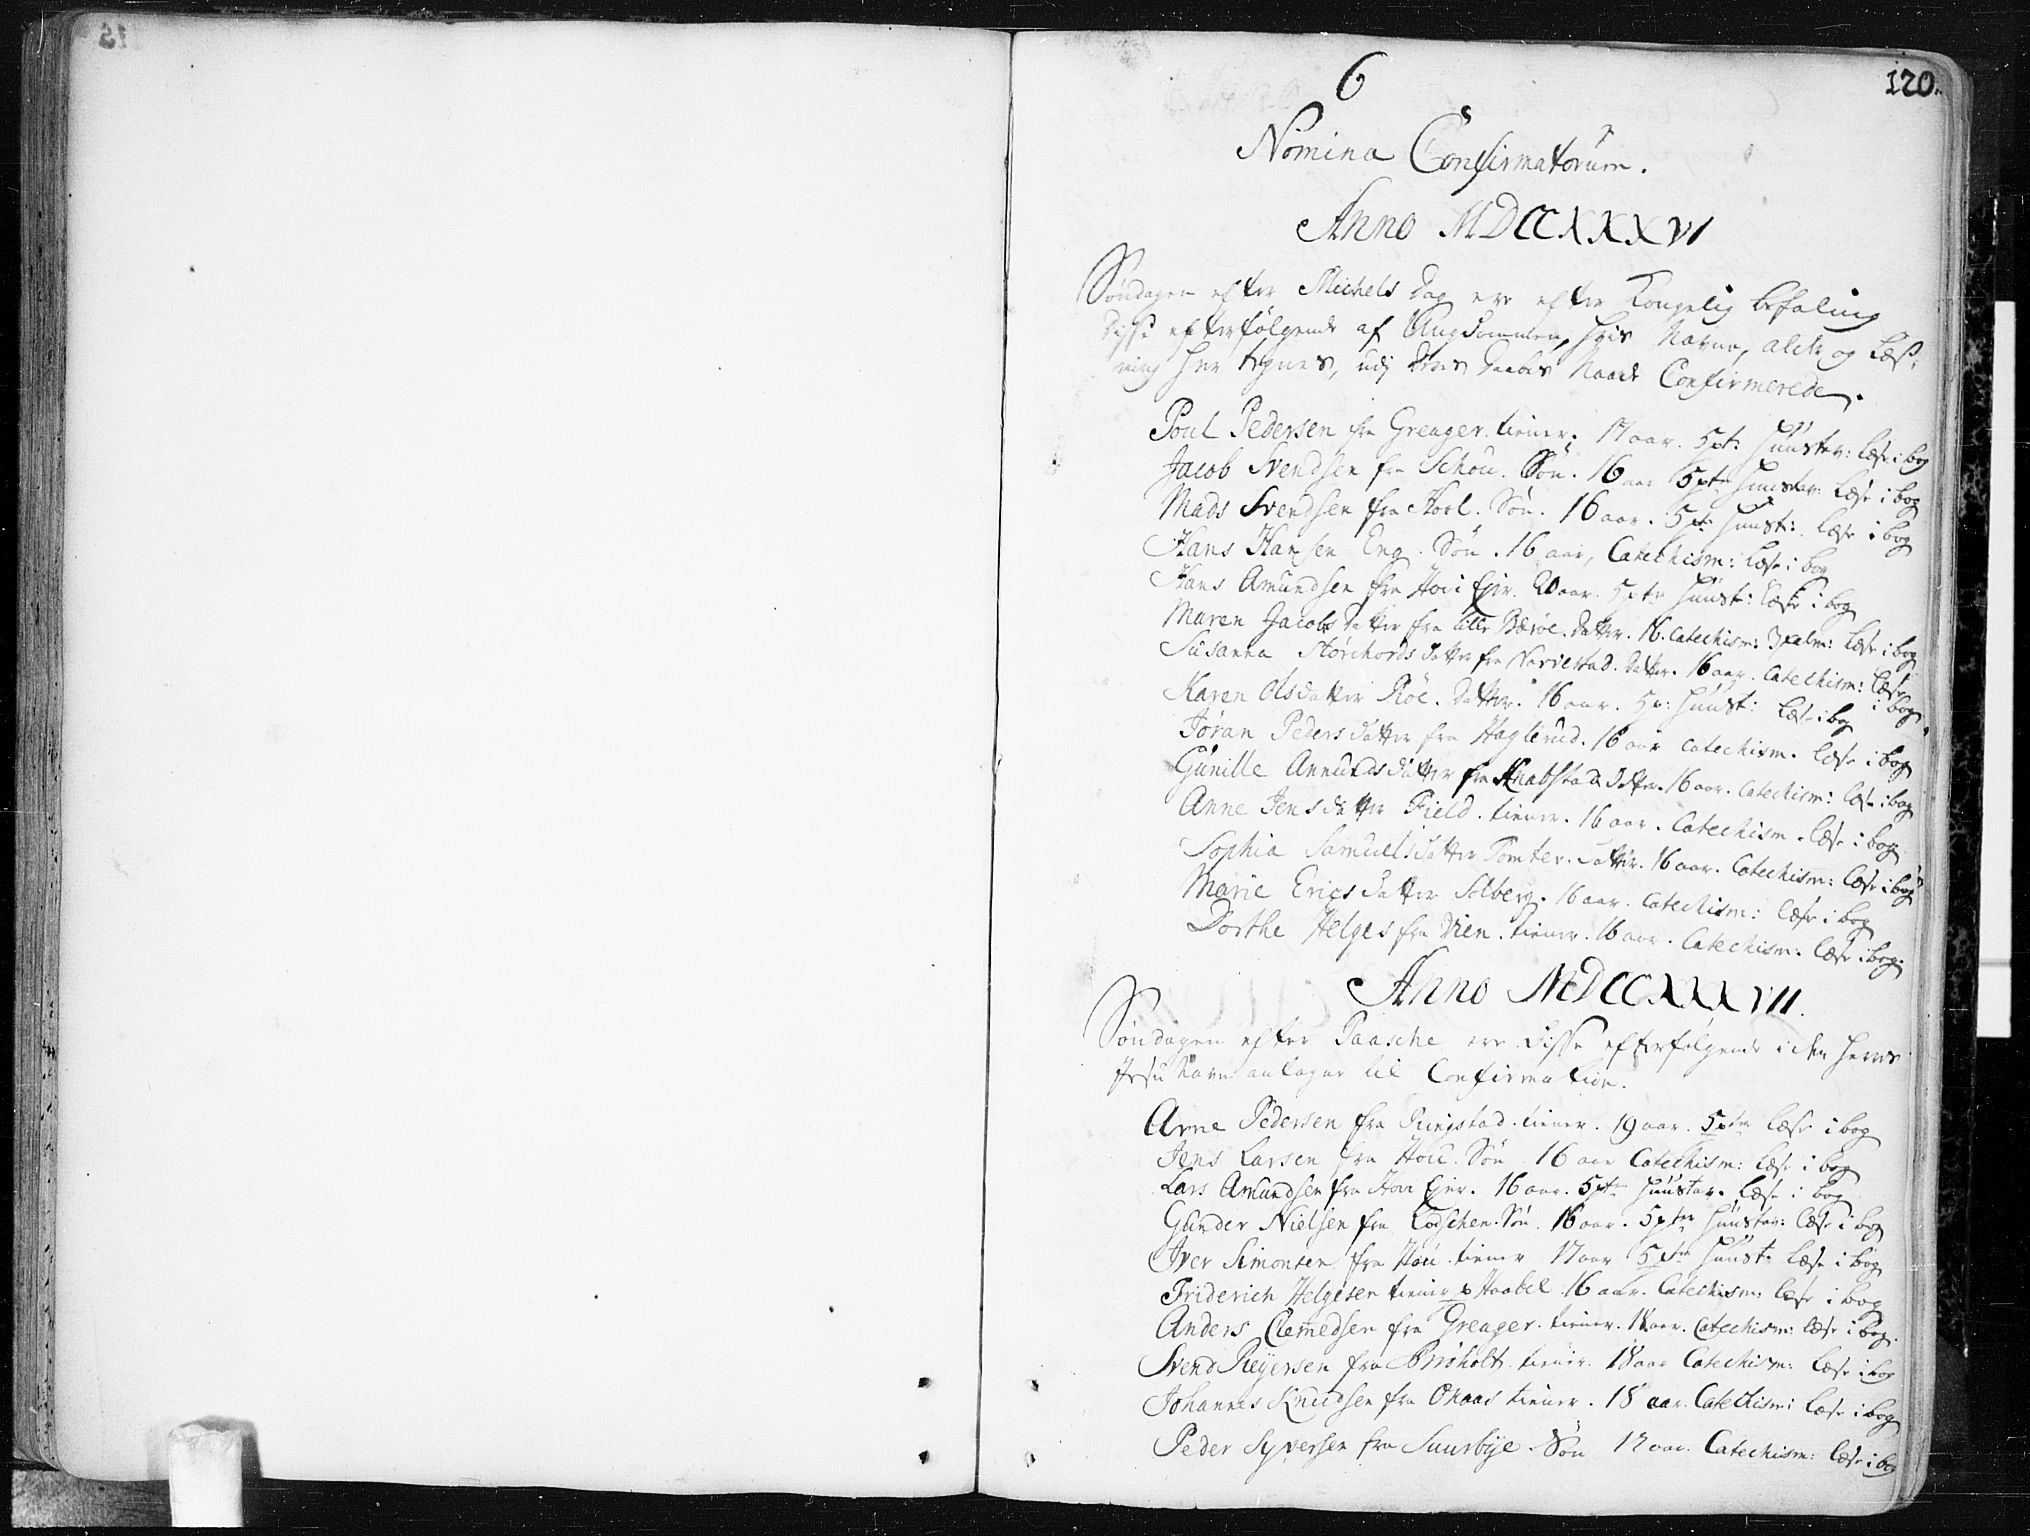 6
120.
Nomina Confirmatorum.
Anno MDCCXXXVI
Søndagen efter Michels dag ere efter Kongelig befaling
disse efterfølgende af Ungdommen, hvis Navne, alder og Læs-
ning her tegnes, udj deres Daabes Naade Confirmerede.
Poul Pedersen fra Greager. tiener. 17 aar. 5 pt: huustav: læse i bog
Jacob Svendsen fra Schou. Søn. 16 aar 5 ptr huustav: læse i bog
Mads Svendsen fra Hovl. Søn. 16 aar. 5 ptr huust: læse i bog
Hans Hansen Eng. Søn. 16 aar, Catechism: læse i bog
Hans Amundsen fra Hovi Ejer. 20 aar. 5 ptr huust: læse i bog
Maren Jacobsdatter fra lille Bærøe. datter. 16. Catechism: 7 psalm: læse i bog
Susanna Størchordsdatter fra Navestad. datter. 16 aar. Catechism: læse i bog
Karen Olsdatter Røe. datter. 16 aar. 5 p: huust: læse i bog
Jøran Pedersdatter fra Haglerud. 16 aar catechism. læse i bog
Gunille Amundsdatter fra Knabstad datter. 16 aar. Catechism: læse i bog
Anne Jensdatter Field. tiener. 16 aar. Catechism. læse i bog
Sophia Samuelsdatter Tomter. datter. 16 aar. Catechism: læse i bog
Marie Ericsdatter Solberg. 16 aar. Catechism: læse i bog
Dorthe Helges fra Vien. tiener. 16 aar. Catechism. læse i bog.
Anno MDCCXXXVII.
Søndagen efter Paasche ere disse efterfølgende i den Herres
Jesu Navn antagne til Confirmation.
Arne Pedersen fra Ringstad. tiener. 19 aar. 5 ptr læse i bog
Jens Larsen fra Hou. Søn 16 aar Catechism: læse i bog
Lars Amundsen fra Hovi Ejer. 16 aar. 5 ptr huustav. læse i bog
Gunder Nielsen fra Lodschen. Søn. 16 aar. 5 ptr huustav: læse i bog
Iver Simonsen fra Hou tiener 17 aar 5 ptr huust. læse i bog
Friderich Helgesen tiener p Haabel. 16 aar. Catechism: læse i bog
Anders Clemedsen fra Greager. tiener. 18 aar. Catechism: læse i bog.
Svend Reyersen fra Brøholt. tiener. 18 aar Catechism: læse i bog
Johannes Knudsen fra Okaas tiener. 18 aar. Catechism: læse i bog
Peder Syversen fra Suurbye Søn 17 aar. Catechism: læse i bog